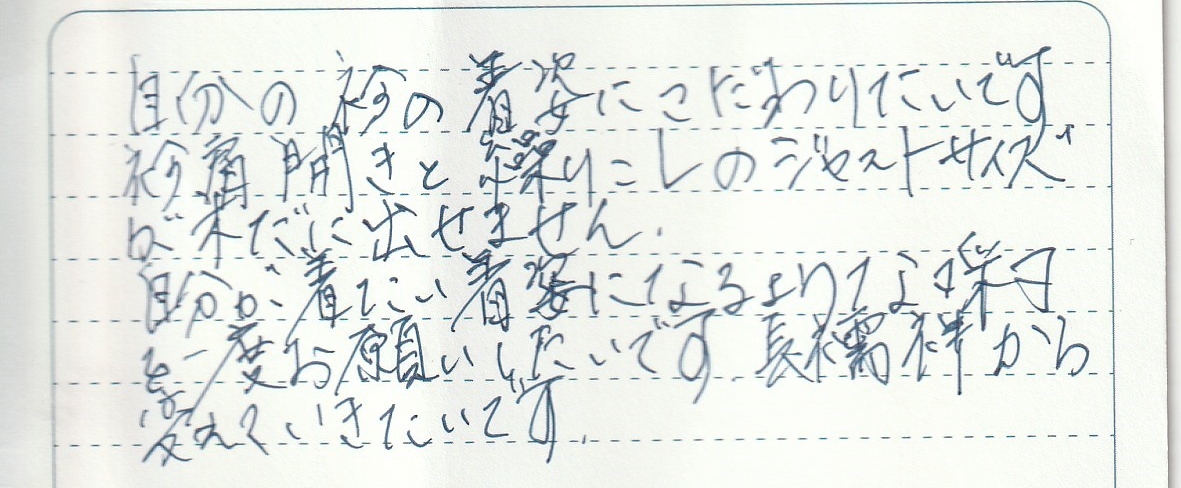 自分の衿の着姿にこだわりたいです
衿肩開きと繰りこしのジャストサイズ
が未だに出せません.
自分が着たい着姿になるよりな採寸
を一度お願いしたいです 長襦袢から
変えていきたいです.